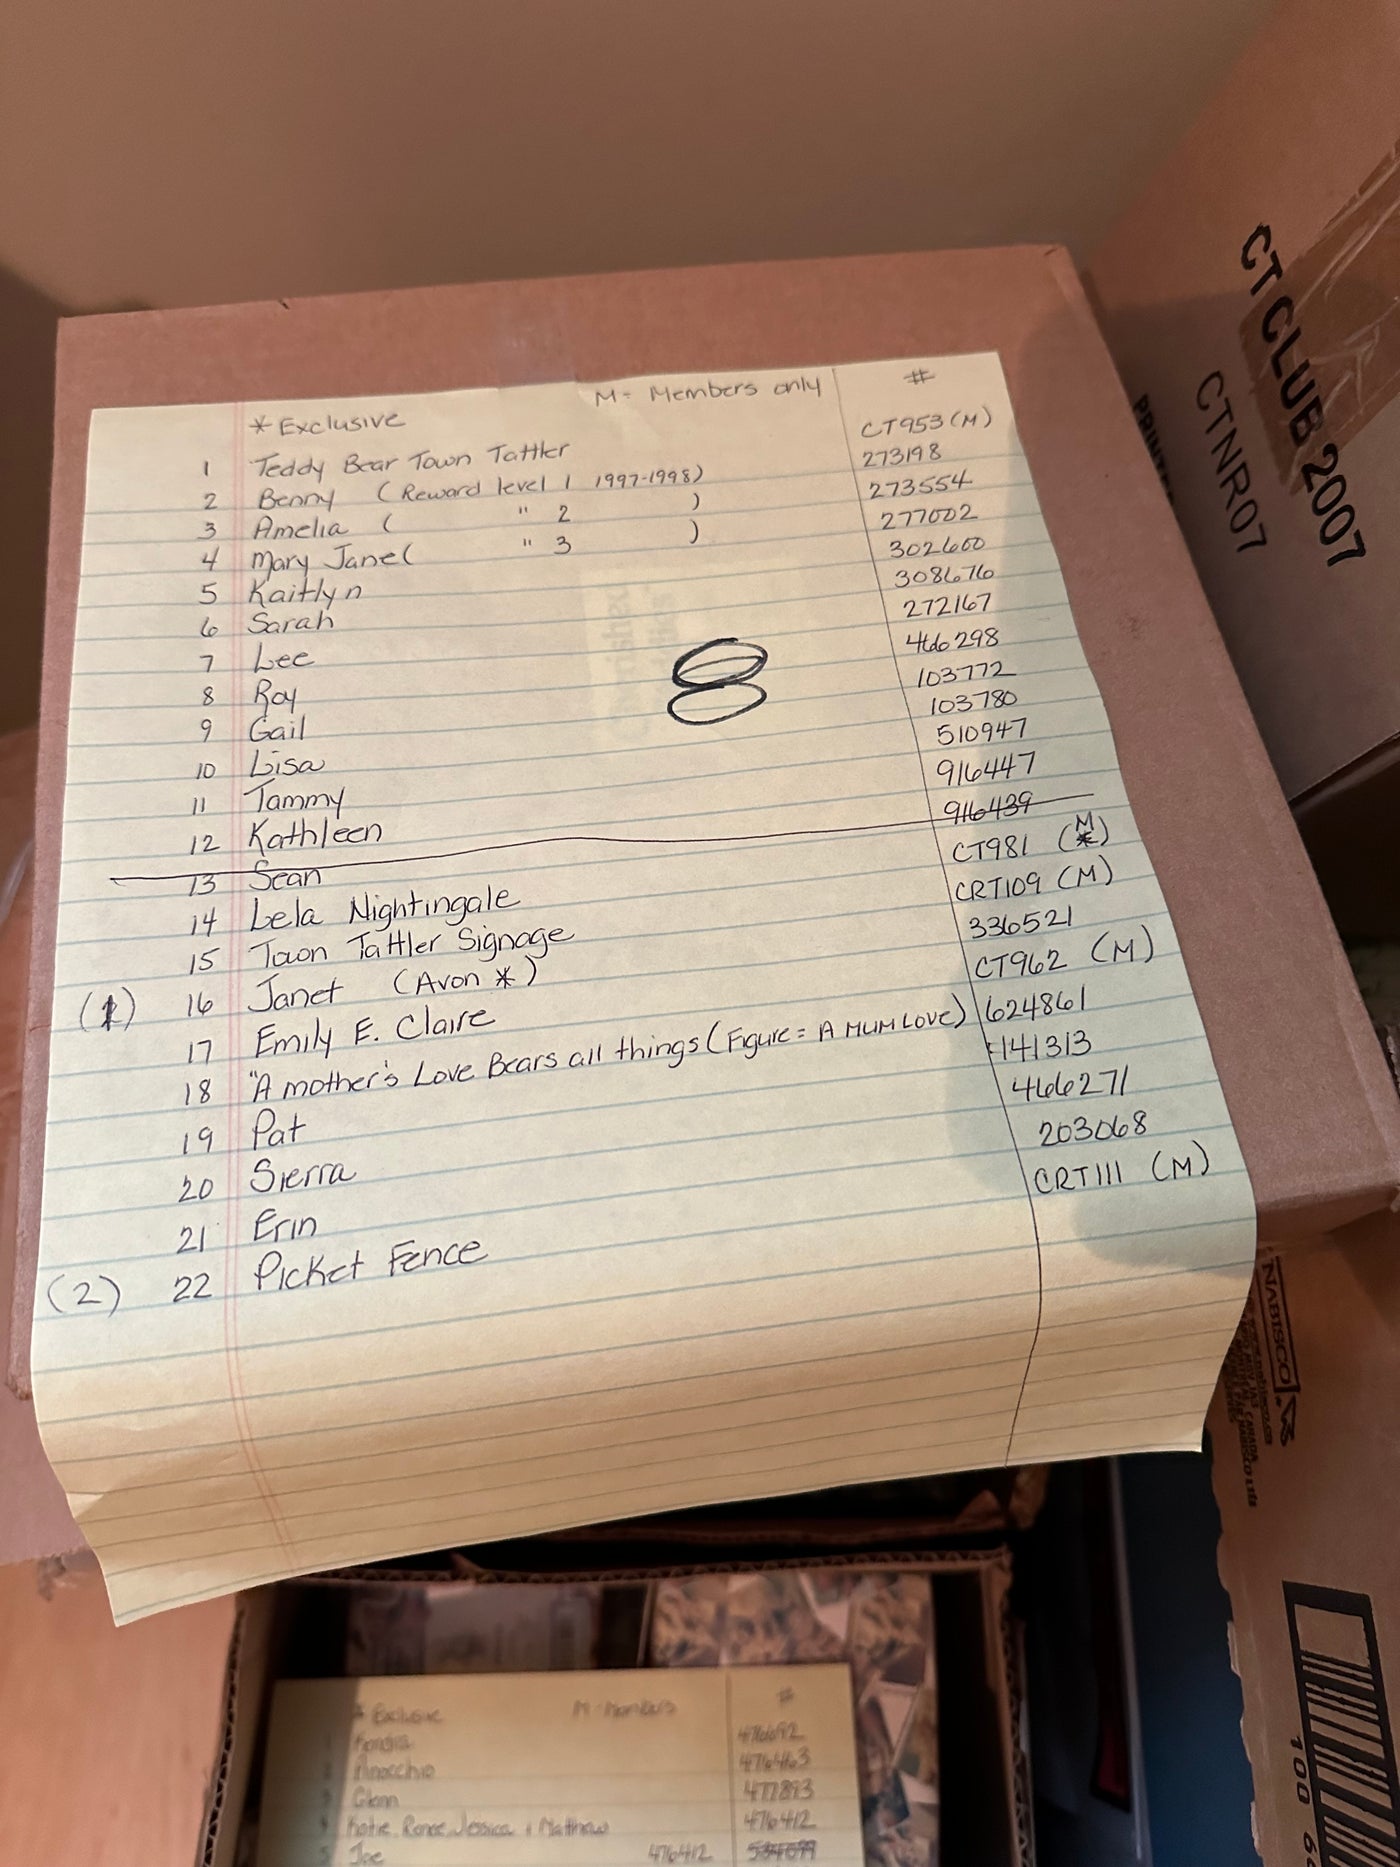 * Exclusive M= Members only #
1 Teddy Bear Town Tattler CT953 (M)
2 Benny (Reward level 1 1997-1998) 273198
3 Amelia ( " 2 ) 273554
4 Mary Jane ( " 3 ) 277002
5 Kaitlyn 302600
6 Sarah 308676
7 Lee 272167
8 Roy 466298
9 Gail 103772
10 Lisa 103780
11 Tammy 510947
12 Kathleen 916447
13 Sean 916439
14 Lela Nightingale CT981 (M)
15 Town Tattler Signage CRT109 (M)
(1) 16 Janet (Avon *) 336521
17 Emily E. Claire CT962 (M)
18 "A mother's Love Bears all things (Figure = A MUM LOVE) 624861
19 Pat 141313
20 Sierra 466271
21 Erin 203068
(2) 22 Picket Fence CRT111 (M)
8
CT CLUB 2007
CTNR07
NABISCO
* Exclusive M-Members #
476692
476463
Glenn 477893
Katie, Renee, Jessica & Matthew 476412
5 Joe 476412